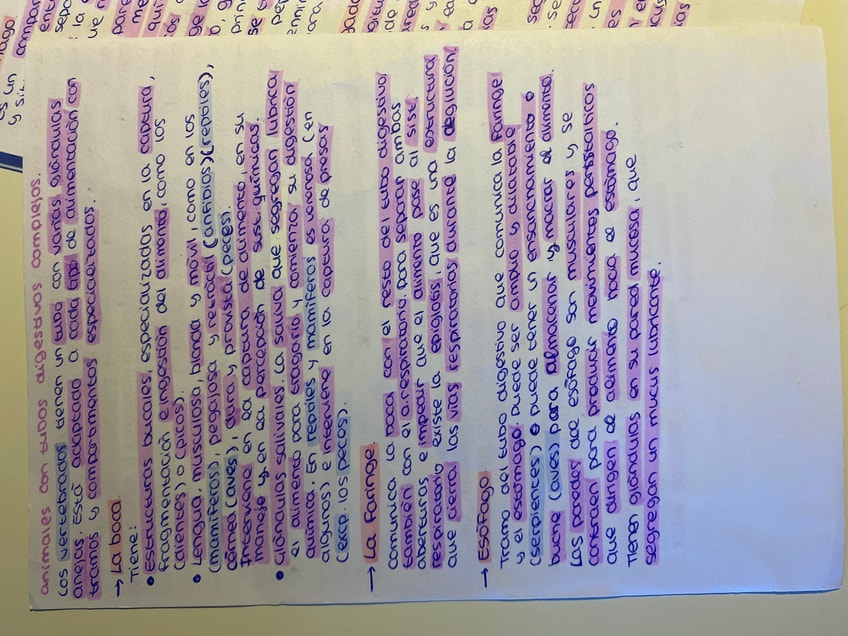 animales con tubos digestivos complejos.
Los vertebrados tienen un tubo con varias glándulas
anejas. Está adaptado a cada tipo de alimentación con
tramos y compartimentos especializados.
→ La boca
Tiene:
• Estructuras bucales, especializadas en la captura,
fragmentación e ingestión del alimento, como los
(dientes) o (picos).
• Lengua, musculosa, blanda y móvil, como en los
(mamíferos), pegajosa y retráctil (anfibios) (reptiles),
córnea (aves), dura y provista (peces).
Interviene en la captura, de alimento, en su
manejo y en la percepción de sust. químicas.
• Glándulas salivales. La saliva que segregan lubrica
el alimento para tragarlo y comenzar su digestión
química. En reptiles y mamíferos es venenosa (en
algunos) e interviene en la captura de presas
(excp. los peces).
→ La Faringe.
comunica la boca con el resto del tubo digestivo
también con el a.respiratorio. Para separan ambas
aberturas e impedir que el alimento pase al sist.
respiratorio existe la epiglotis, que es una estructura
que cierra las vías respiratorias durante la deglución.
→ Esófago.
Tramo del tubo digestivo que comunica la Faringe
y el estómago. Puede ser amplio y dilatable
(serpientes) o puede tener un ensanchamiento o
buche (aves) para almacenar y macerar el alimento.
Las paredes del esófago son musculares y se
contraen para producir movimientos peristálticos
que dirigen el alimento hacia el estómago.
Tienen glándulas en su pared mucosa, que
segregan un mucus lubricante.